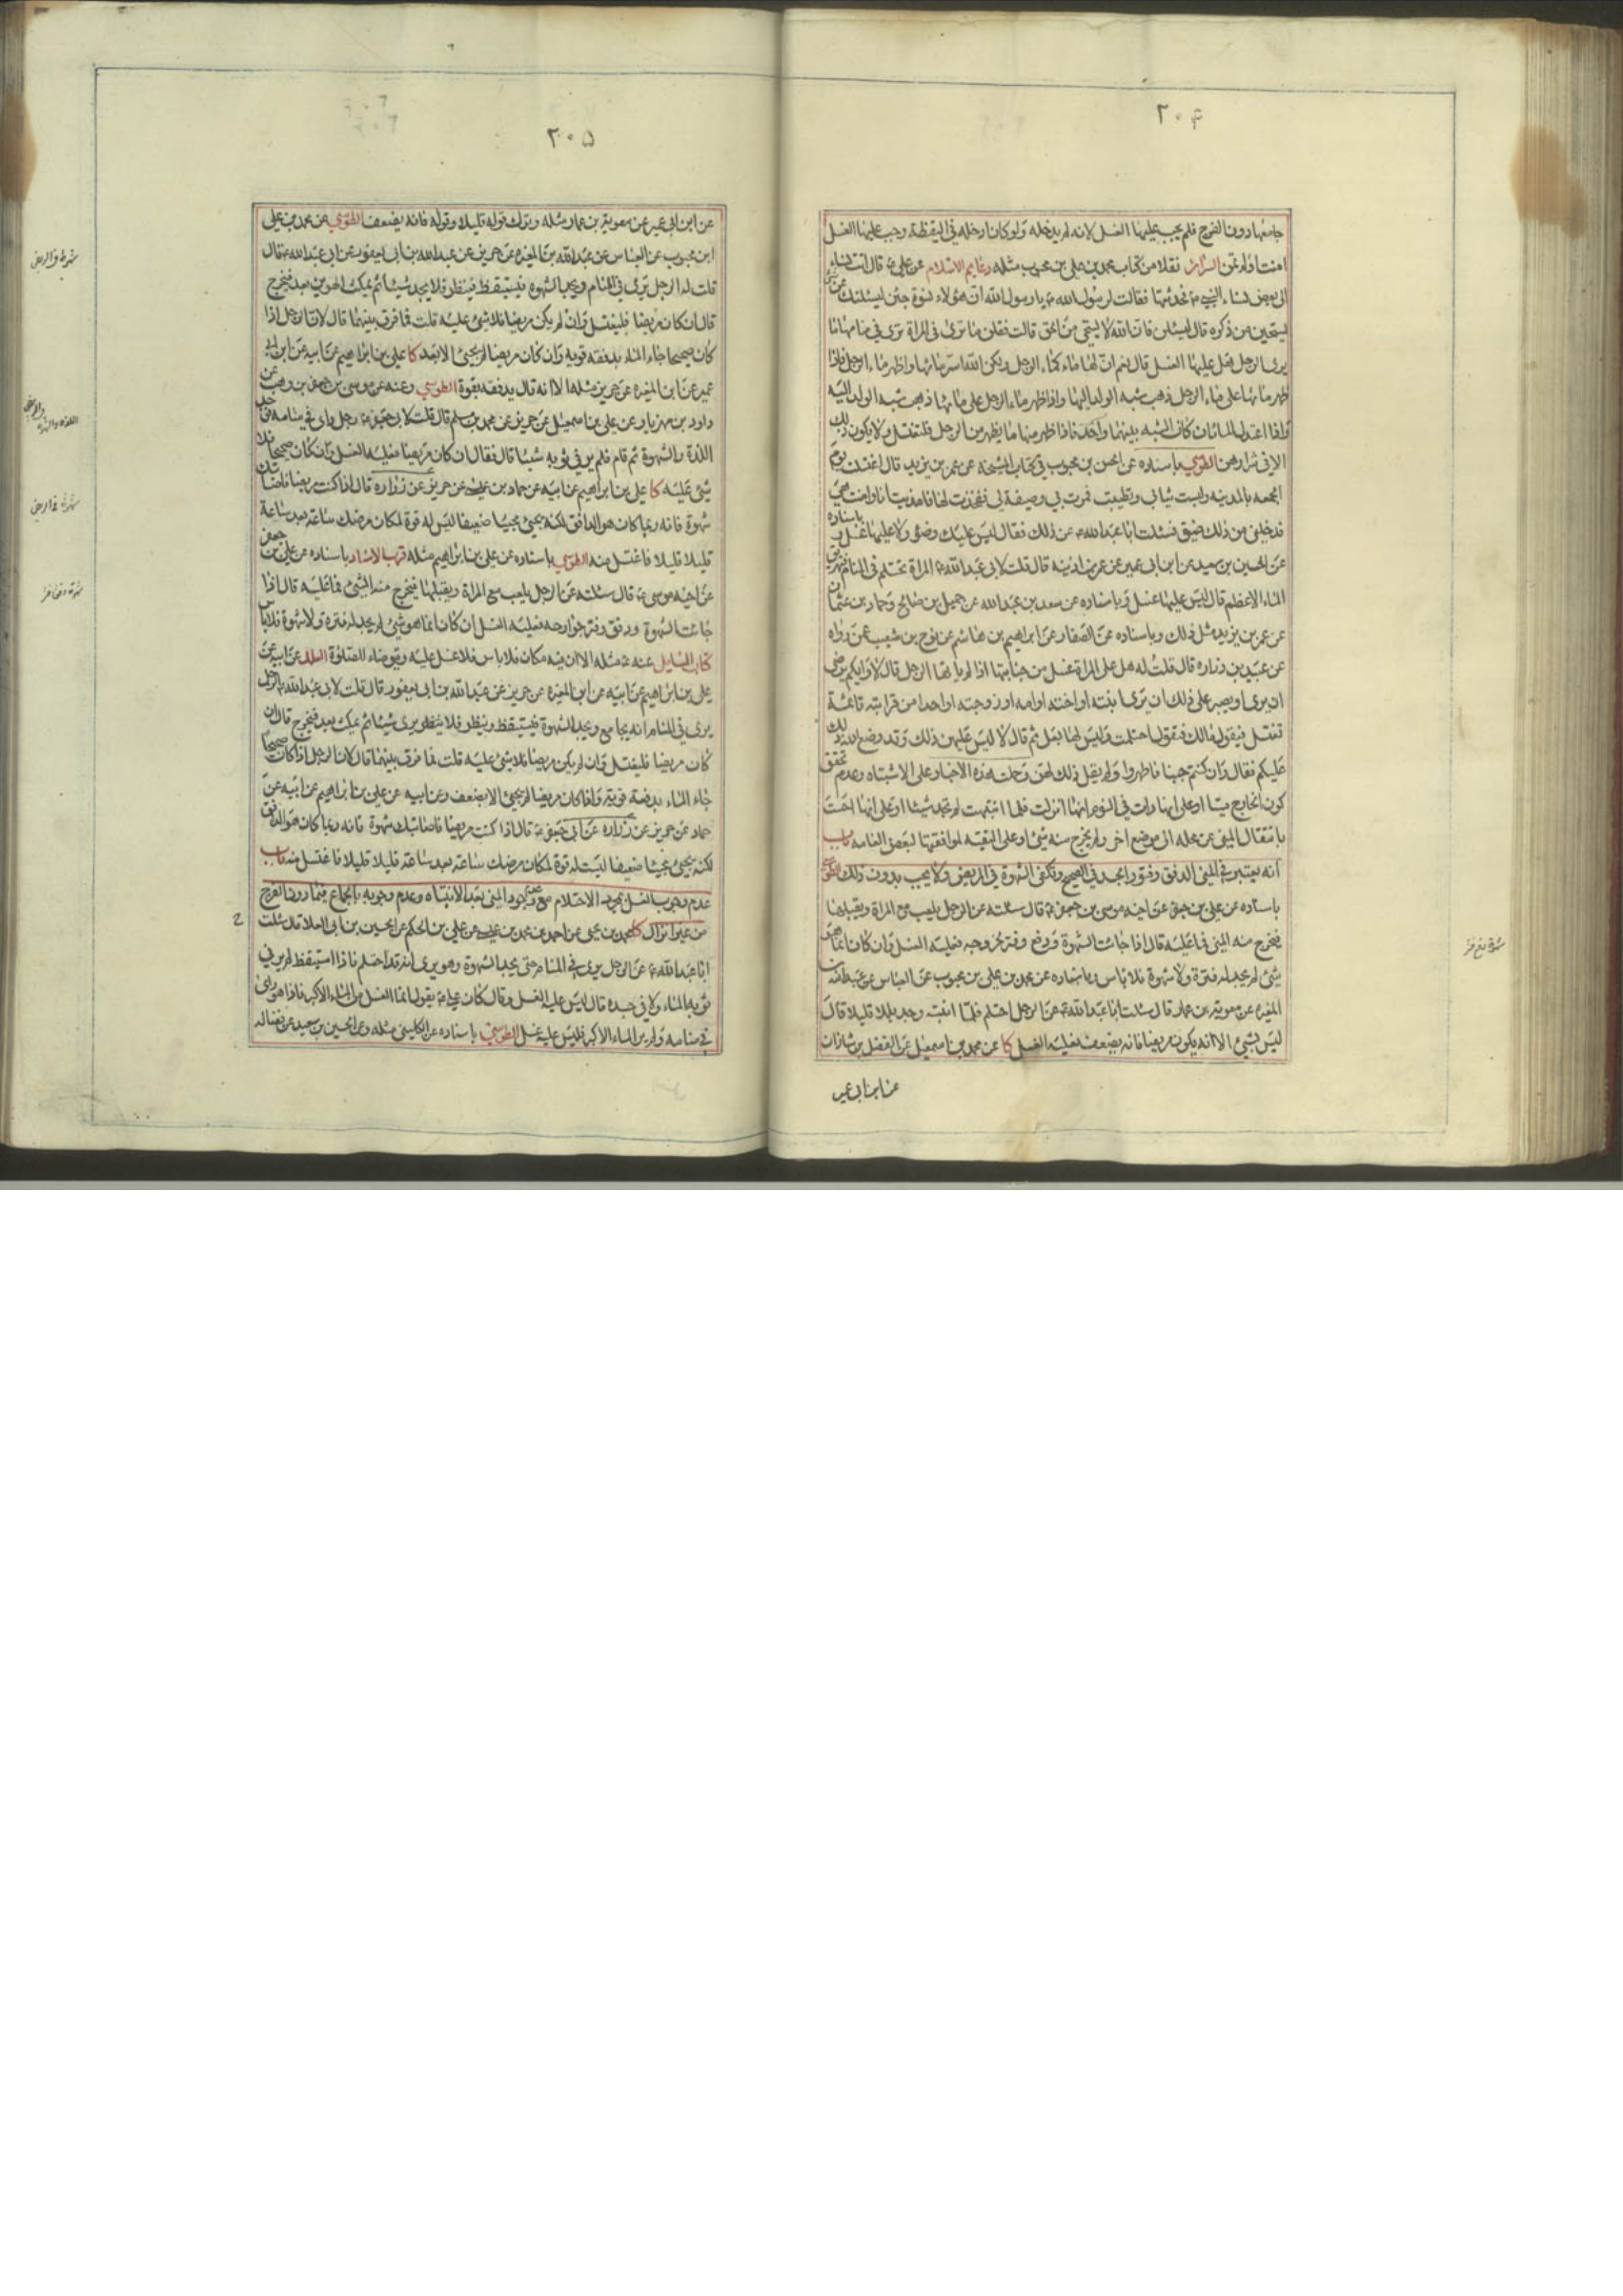 ٢٠۴
جامعها دون الفرج فلم يجب عليها الغسل لانه لم يدخله ولو كان ادخله في اليقظة وجب عليها الغسل
امنت اولم تمن السرائر نقلا من كتاب محمد بن علي بن محبوب مثله دعايم الاسلام عن علي ع قال اتت نساء
الى بعض نساء النبي ص فحدثتها فقالت لرسول الله ص يا رسول الله ان هؤلاء نسوة جئن ليسئلنك عن شئ
يستحيين من ذكره قال ليسئلن فان الله لا يستحي من الحق قالت فقلن ما ترى في المراة ترى في منامها ما
يرى الرجل هل عليها الغسل قال نعم ان لها ماء كماء الرجل ولكن الله اسر مائها واظهر ماء الرجل فاذا
ظهر مائها على ماء الرجل ذهب شبه الولد اليها واذا ظهر ماء الرجل على مائها ذهب شبه الولد اليه
واذا اعتدل الماءان كان الشبه بينهما واحد فاذا ظهر منها ما يظهر من الرجل فلتغتسل ولا يكون ذلك
الا في شرارهن الطوسي باسناده عن الحسن بن محبوب في كتاب المشيخه عن عمر بن يزيد قال اغتسلت يوم
الجمعه بالمدينه ولبست ثيابي وتطيبت فمرت بي وصيفة لي ففخذت لها فامذيت انا وامنت هي
فدخلني من ذلك ضيق فسئلت ابا عبد الله ع عن ذلك فقال ليس عليك وضوء ولا عليها غسل وباسناده
عن الحسين بن سعيد عن ابن ابي عمير عن عمر بن اذينه قال قلت لابي عبد الله ع المراة تحتلم في المنام فتهريق
الماء الاعظم قال ليس عليها غسل وباسناده عن سعد بن عبد الله عن جميل بن صالح وحماد بن عثمان
عن عمر بن يزيد مثل ذلك وباسناده عن الصفار عن ابراهيم بن هاشم عن نوح بن شعيب عمن رواه
عن عبيد بن زراره قال قلت له هل على المراة غسل من جنابتها اذا لم ياتها الرجل قال لا وايكم يرضى
ان يرى او يصبر على ذلك ان يرى ابنته او اخته او امه او زوجته او احدا من قرابته قائمة
تغتسل فيقول مالك فتقول احتلمت وليس لها بعل ثم قال لا ليس عليهن ذلك وقد وضع الله ذلك
عليكم فقال وان كنتم جنبا فاطهروا ولم يقل ذلك لهن وحملت هذه الاخبار على الاشتباه وعدم تحقق
كون الخارج منيا او على انها رات في النوم انها انزلت فلما انتبهت لم تجد شيئا او على انها احست
بانتقال المني عن محله الى موضع اخر ولم يخرج منه شئ او على التقيه لموافقتها لبعض العامه باب
انه يعتبر في المني الدفق وفتور الجسد في الصحيح وتكفي الشهوة في المريض ولا يجب بدون ذلك الطوسي
باسناده عن علي بن جعفر عن اخيه موسى بن جعفر ع قال سئلته عن الرجل يلعب مع المراة ويقبلها
فيخرج منه المني فما عليه قال اذا جائت الشهوة ودفع وفتر لخروجه فعليه الغسل وان كان انما هو
شئ لم يجد له فترة ولا شهوة فلا باس وباسناده عن محمد بن علي بن محبوب عن العباس عن عبد الله بن
المغيره عن معوية بن عمار قال سئلت ابا عبد الله ع عن الرجل احتلم فلما انتبه وجد بللا قليلا قال
ليس بشئ الا ان يكون مريضا فانه يضعف فعليه الغسل كا عن محمد بن اسمعيل عن الفضل بن شاذان
عن ابن ابي عمير
٢٠۵
عن ابن ابي عمير عن معوية بن عمار مثله وترك قوله قليلا وقوله فانه يضعف الطوسي عن محمد بن علي
ابن محبوب عن العباس عن عبد الله بن المغيره عن حريز عن عبد الله بن ابي يعفور عن ابي عبد الله ع قال
قلت له الرجل يرى في المنام ويجد الشهوة فيستيقظ فينظر فلا يجد شيئا ثم يمكث الهوين بعد فيخرج
قال ان كان مريضا فليغتسل وان لم يكن مريضا فلا شئ عليه قلت فما فرق بينهما قال لان الرجل اذا
كان صحيحا جاء الماء بدفقه قويه وان كان مريضا لم يجئ الا بعد كا علي بن ابراهيم عن ابيه عن ابن ابي
عمير عن ابن المغيره عن حريز مثله الا انه قال يدفعه بقوة الطوسي وعنه عن موسى بن جعفر بن وهب عن
داود بن مهزيار عن علي بن اسمعيل عن حريز عن محمد بن مسلم قال قلت لابي جعفر ع رجل راى في منامه فوجد
اللذة والشهوة ثم قام فلم ير في ثوبه شيئا قال فقال ان كان مريضا فعليه الغسل وان كان صحيحا فلا
شئ عليه كا علي بن ابراهيم عن ابيه عن حماد بن عيسى عن حريز عن زراره قال اذا كنت مريضا فاصابتك
شهوة فانه ربما كان هو الدافق لكنه يجئ مجيئا ضعيفا ليس له قوة لمكان مرضك ساعة بعد ساعة
قليلا قليلا فاغتسل منه الطوسي باسناده عن علي بن ابراهيم مثله قرب الاسناد باسناده عن علي بن جعفر
عن اخيه موسى ع قال سئلته عن الرجل يلعب مع المراة ويقبلها فيخرج منه الشئ فما عليه قال اذا
جائت الشهوة ودفق وفتر جوارحه فعليه الغسل ان كان انما هو شئ لم يجد له فترة ولا شهوة فلا باس
كتاب المسايل عنه ع مثله الا ان فيه مكان فلا باس فلا غسل عليه ويتوضاء للصلوة العلل عن ابيه عن
علي بن ابراهيم عن ابيه عن ابن المغيره عن حريز عن عبد الله بن ابي يعفور قال قلت لابي عبد الله ع الرجل
يرى في المنام انه يجامع ويجد الشهوة فيستيقظ وينظر فلا ينظر يرى شيئا ثم يمكث بعد فيخرج قال ان
كان مريضا فليغتسل وان لم يكن مريضا فلا شئ عليه قلت فما فرق بينهما قال لان الرجل اذا كان صحيحا
جاء الماء بدفعة قوية واذا كان مريضا لم يجئ الا بضعف وعن ابيه عن علي بن ابراهيم عن ابيه عن
حماد عن حريز عن زراره عن ابي جعفر ع قال اذا كنت مريضا فاصابتك شهوة فانه ربما كان هو الدافق
لكنه يجئ مجيئا ضعيفا ليست له قوة لمكان مرضك ساعة بعد ساعة قليلا قليلا فاغتسل منه باب
عدم وجوب الغسل بمجرد الاحتلام مع عدم وجود المني بعد الانتباه وعدم وجوبه بالجماع فيما دون الفرج
من غير انزال كا محمد بن يحيى عن احمد بن محمد عن علي بن الحكم عن الحسين بن ابي العلا قال سئلت
ابا عبد الله ع عن الرجل يرى في المنام حتى يجد الشهوة وهو يرى انه قد احتلم فاذا استيقظ لم ير في
ثوبه الماء ولا في جسده قال ليس عليه الغسل وقال كان علي ع يقول انما الغسل من الماء الاكبر فاذا هو راى
في منامه ولم ير الماء الاكبر فليس عليه غسل الطوسي باسناده عن الكليني مثله وعن الحسين بن سعيد عن فضاله